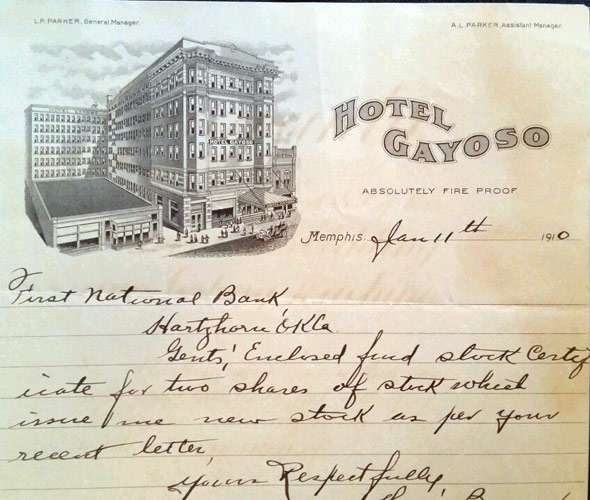 L.P. PARKER, General Manager.
A.L. PARKER, Assistant Manager
HOTEL GAYOSO
HOTEL
GAYOSO
ABSOLUTELY FIRE PROOF.
Memphis, Jan 11th 1910
First National Bank
Hartshorn, Okla
Gents; Enclosed find stock Certif
icate for two shares of stock which
issue me new stock as per your
recent letter,
Yours Respectfully,